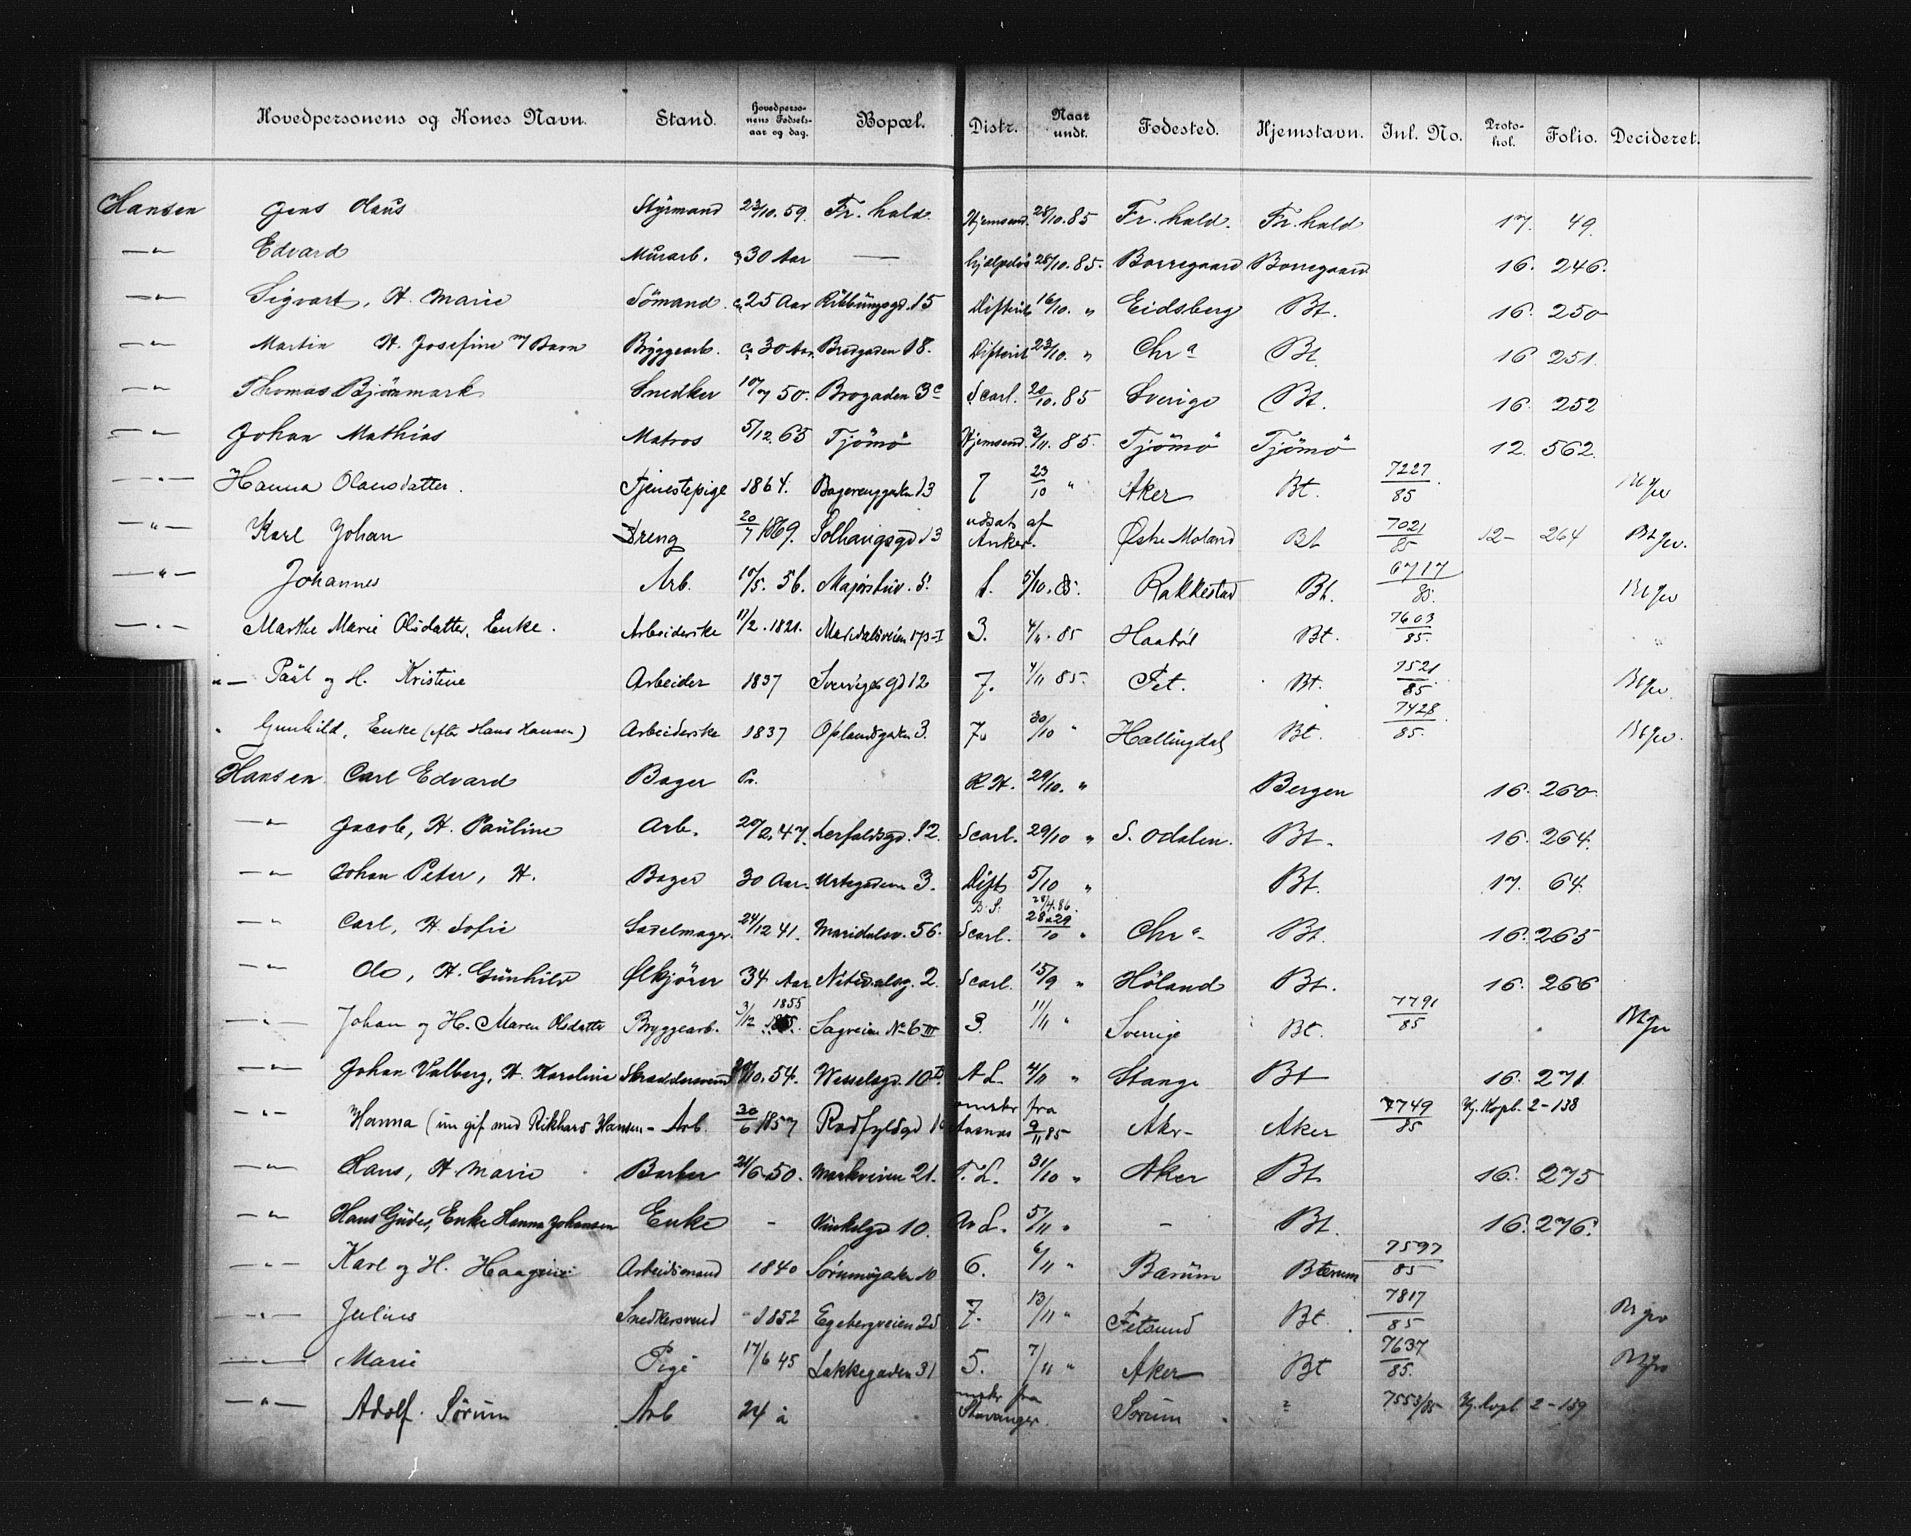 Hovedpersonens og Kones Navn. Stand. Hovedpersonens Fødselsaar og dag. Bopæl. Distr. Naar undt. Fødested. Hjemstavn. Inl. No. Protokol. Folio. Decideret.
Hansen Jens Olaus Styrmand 23/10.59. Fr.hald. Hjemsend. 28/10.85 Fr.hald. Fr.hald 17. 49.
—"— Edvard Murarb. 30 Aar — hjælpeløs 28/10.85. Borregaard Borregaard 16. 246.
—"— Sigvart, H. Marie Sömand. ca 25 Aar 15 Difterit 16/10. " Eidsberg Bt. 16. 250
—"— Martin H. Josefine m/ Barn Bryggearb. ca 30 Aar Bredgaden 18. Difterit 23/10. " Chr a Bt. 16 251.
—"— Thomas Bjönmark Snedker 50. Brogaden 3c Scarl. 20/10.85 Sverige Bt. 16. 252
—"— Johan Mathias Matros 5/12 65 Tjömö Hjemsend. 3/11. 85. Tjömö Tjömö 12. 562.
—"— Hanna Olausdatter. Tjenestepige 1864. 13 7 23/10 " Aker Bt. 7227/85
—"— Karl Johan Dreng 20/7 1869. Solhaugsgd 13 udsat af Anker. Østre Moland Bt 7021/85 12- 264
—"— Johannes Arb. 56. 5/10. Rakkestad Bt. 6717/85.
—"— Marthe Marie Olsdatter, Enke. Arbeiderske 1821. Maridalsveien 3. 85 Haabøl Bt. 7603/85. "
"— Paul og H. Kristine Arbeider 1837 Sverigesgd 12 7. 4/11 85. Fet. Bt. 7521/85
" Gunhild, Enke (efter Hans Hansen) Arbeiderske 1837 Oplandsgaden 3. 7. 30/10 " Hallingdal Bt. 7428/85.
Hansen Carl Edvard Bager R.H. 29/10. " Bergen 16. 260.
—"— Jacob, H. Pauline Arb. 47. Lerfaldsgd. 82. Scarl. 29/10 " S. Odalen. Bt. 16. 264.
—"— Johan Peter, H. Bager 30 Aar. Urtegaden 3. Difts 5/10 " Bt. 17. 64.
—"— Carl, H. Sofie Sadelmager. 24/12 41. Maridalsv. 56. Scarl. 28 & 29/10 " Chr a Bt. 16. 265
—"— Ole, H. Gunhild Ølkjörer 34 Aar Nitedalsg. 2. Scarl. 15/9 " Höland Bt. 16. 266
—"— Johan og H. Maren Olsdatter Bryggearb. 3/12 1855 Sagveien No 6 III 3. 11/11 " Sverrige Bt. 7791/85
—"— Johan Valberg, H. Karoline Skræddersvend 54. Wesselsgd. 10 A.L. 4/11 " Stange Bt 16. 271.
—"— Hanna (un gif med Rikhard Hansen - Arb. 30/6 1857 Rodfyldgd fra 9/11 85 Aker Aker 7749/85 2-138
—"— Hans, H Marie Barber 50. Markveien 21. T.L. 31/10 " Aker Bt 16. 275
—"— Enke Hanna Johansen Enke - Vinkelgd 10. A.L. 5/11 " - Bt. 16. 276.
—"— Karl og H. Arbeidsmand 1840 10 6. 6/11 " Bærum Bærum 7597/85
—"— Julius Snedkersvend 1852 Egebergveien 25 7. 13/11 " Fetsund Bt. 7817/85
—"— Marie Pige 17/6 45 Lakkegaden 31 5. 7/11 " Aker Bt 7637/85.
—"— Adolf Sørum Arb 24 å fra Stavanger. Sørum 7553/85 2-139